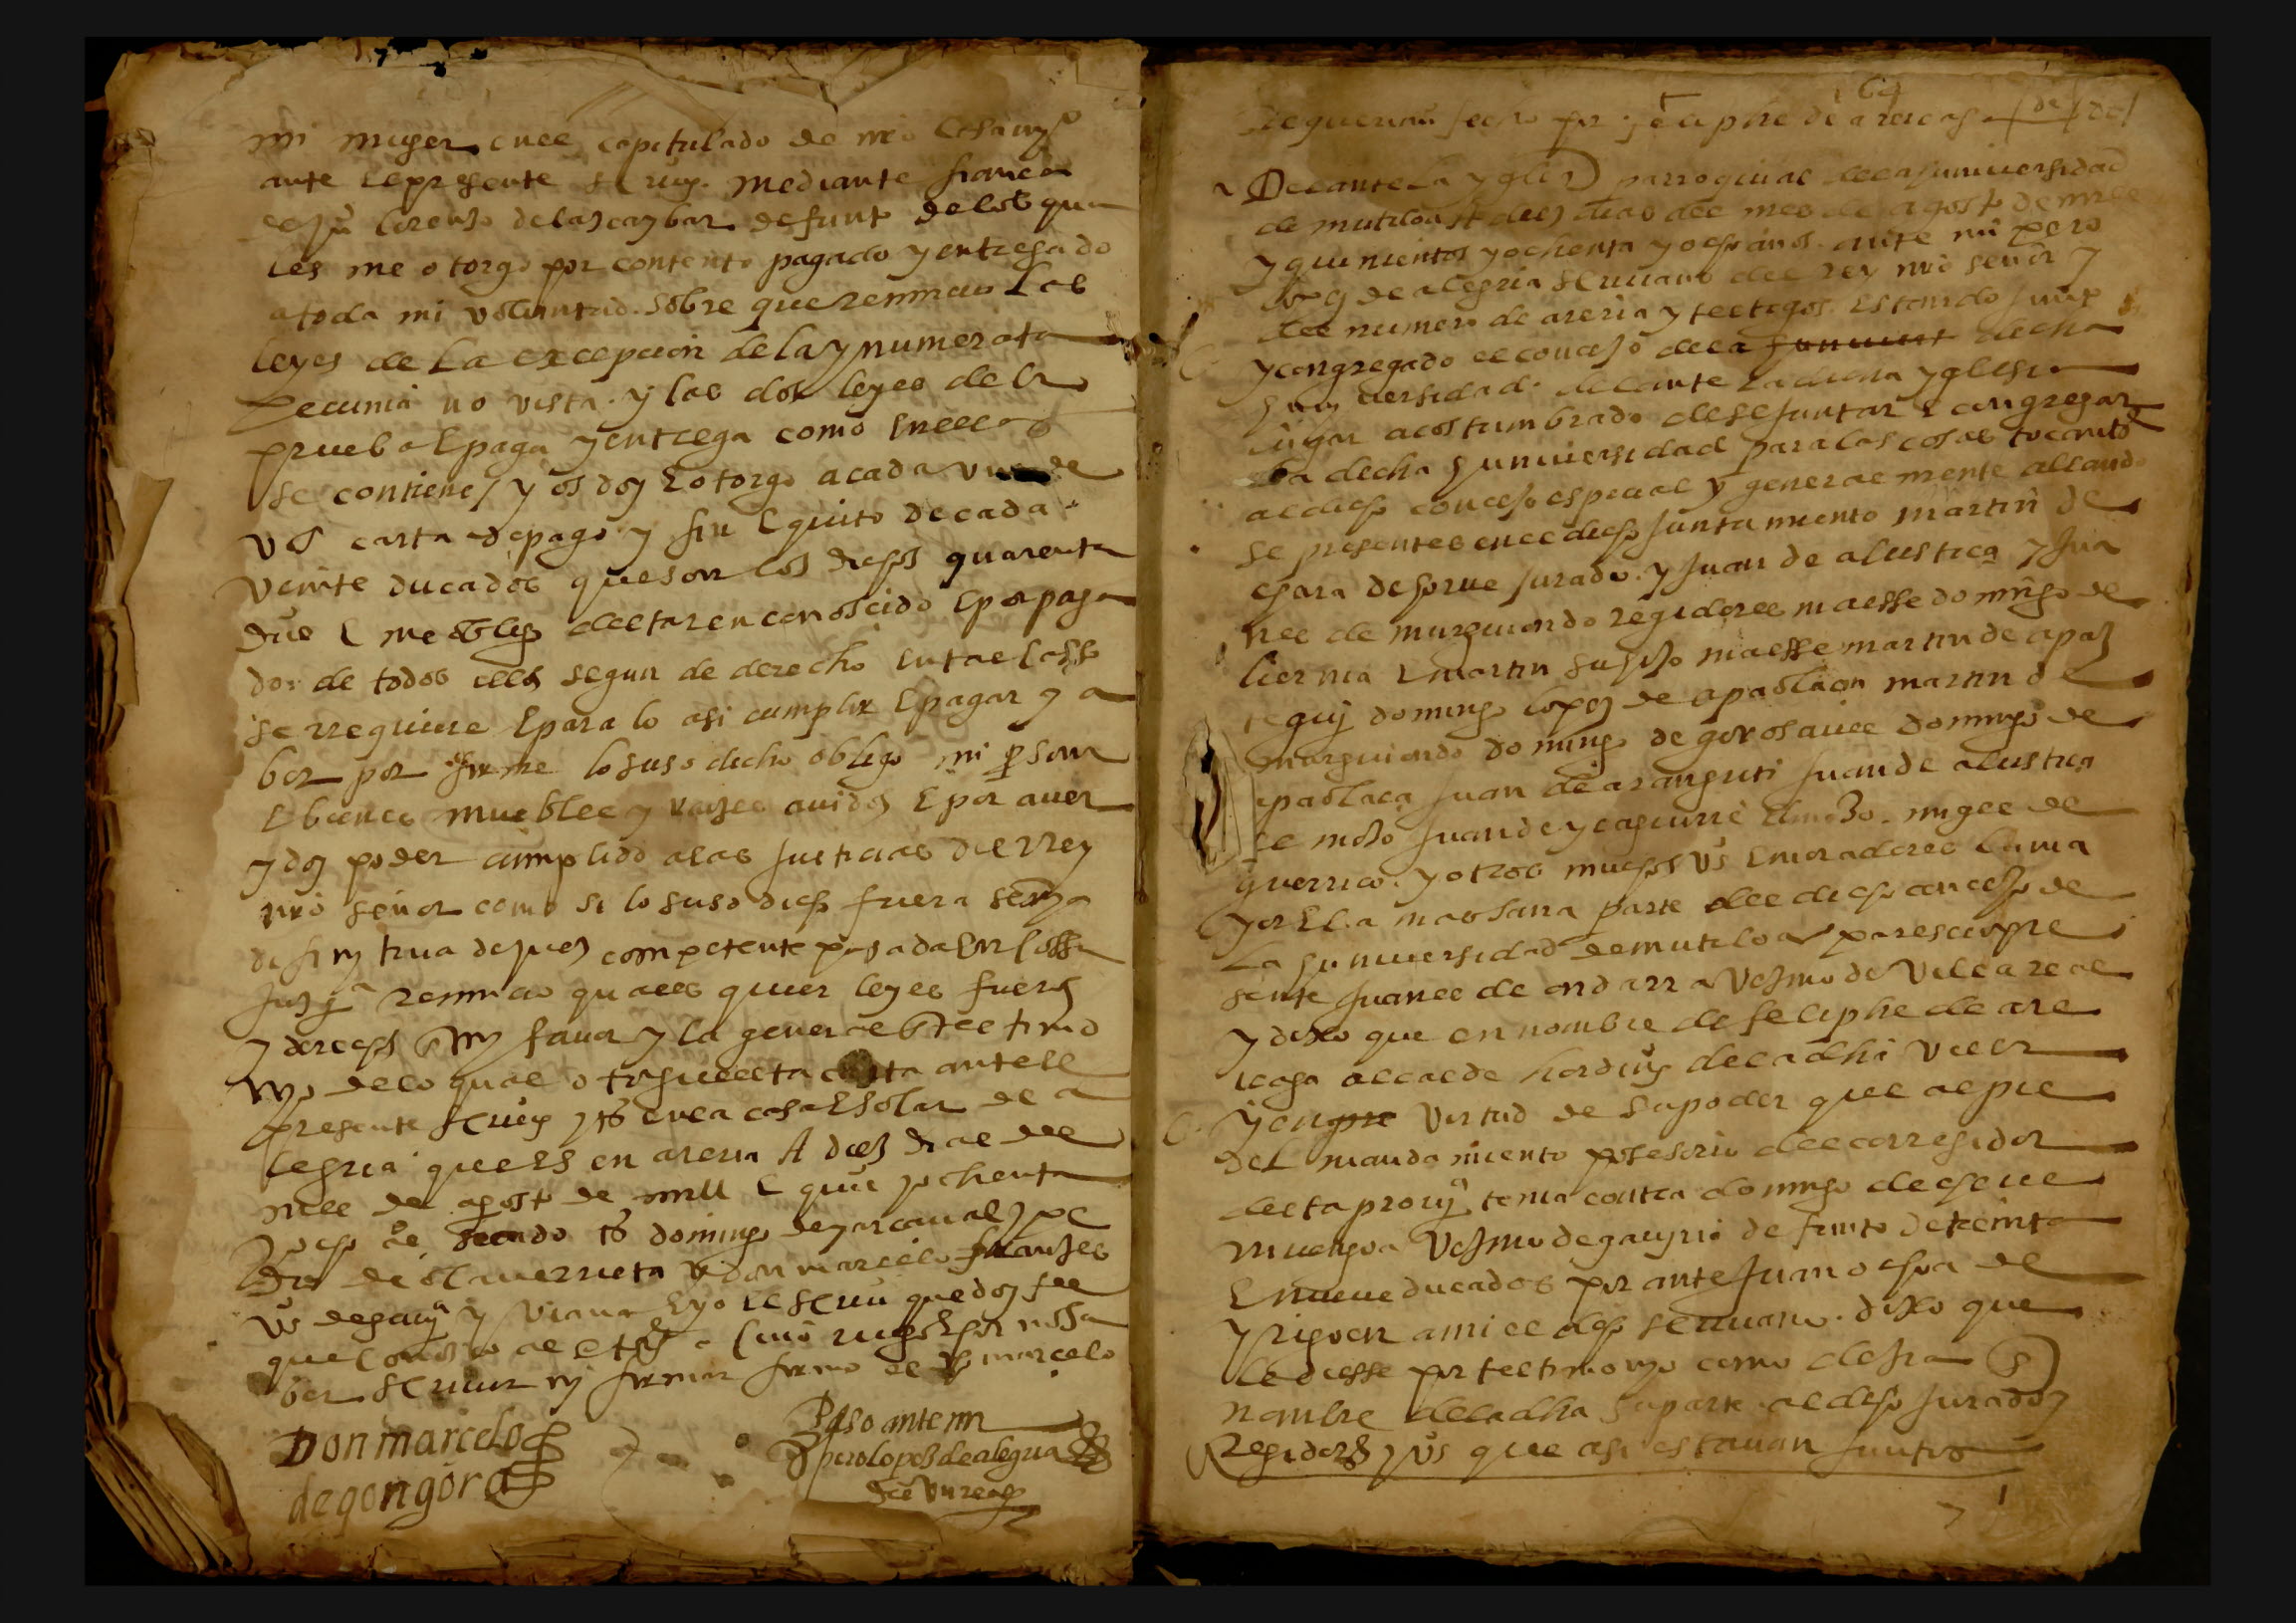 mi muger enel capitulado de nro casamyº
ante el presente scriuº. mediante fiança
lorenso delascaybar defunto delos qua
les me otorgo por contento pagado y entregado
a toda mi voluntad. sobre que renuncio las
leyes de la excepcion dela ynumerata
pecunia no vista. y las dos leyes de la
prueba E paga y entrega como en ellas
se contiene / y os doy E otorgo a cada vno de
vs carta de pago y fin E quito de cada
veinte ducados que son los dichos quarenta
dus E me obligo de estar en conoscido E por paga
dor de todos ellos segun de derecho en tal casso
se rrequiere E para lo asi cumplir E pagar y a
ber por firme lo suso dicho obligo mi persona
E bienes muebles y rayzes auidos E por auer
y doy poder cumplido a las justicias del rrey
nro señor como si lo suso dicho fuera senyª
difinytiua de juez competente pasada en cossa
juzgª renuncio quales quier leyes fueros
y derechos en my fauor y la general
delo qual otorgue esta carta ante el
presente scriuº en la casa E solar de a
legria que es en areria A diez dias del
mes de agosto de mill E quiº y ochenta
y ocho as siendo ts domingo de yarcaual y pe
dro de olauerrieta y don marcelo
vs de gauiª y viana E yo el scriuº que doy fee
que conozco al E por no sa
ber scriuir ny firmar firmo el marcelo
Don marcelo
de gongora
Paso ante mi
pero lopez de alegria

64
Requerimº fecho por feliphe de areicaga
Delante la yglesia parroquial de la suniuersidad
de mutiloa A diez dias del mes de agosto de mill
y quinientos y ochenta y ocho años. ante mi pero
lopez de alegria scriuano del rey nro señor y
del numero de areria y testigos. Estando junto
y congregado el concejo de la suniuers dicha
suniuersidad. delante la dicha yglesia
lugar acostumbrado de se juntar E congregar
la dicha suniuersidad para las cosas tocantes
al dicho concejo especial y generalmente allando
se presentes en el dicho juntamiento martin de
jurado. y juan de alustiça y jua
nes de murguiondo regidores maesse domingo de
liernia E martin su hijo maesse martin de apaz
tegui domingo lopez de apaolaça martin de
murguiondo domingo de gorosauel domingo de
apaolaça juan de aranguti juan de alustiça
el moço juan de ycaguirre El moço. migel de
guerrico. y otros muchos vs E moradores la ma
yor E la mas sana parte del dicho concejo de
la suniuersidad de mutiloa parescio pre
sente juanes de ondarra vezino de villareal
y dixo que en nombre de feliphe de are
icaga alcalde hordinº de la dha villa
y en pre virtud de su poder que al pie
del mandamiento posesorio del corregidor
desta prouª tenia contra domingo de
vezino de gauiria defunto de treinta
E nueue ducados por ante juan ochoa de
y rigoen a mi el dicho scriuano. dixo que
le diesse por testimonyo como dezia
nombre de la dha su parte al dicho jurado y
Regidores y vs que asi estauan juntos